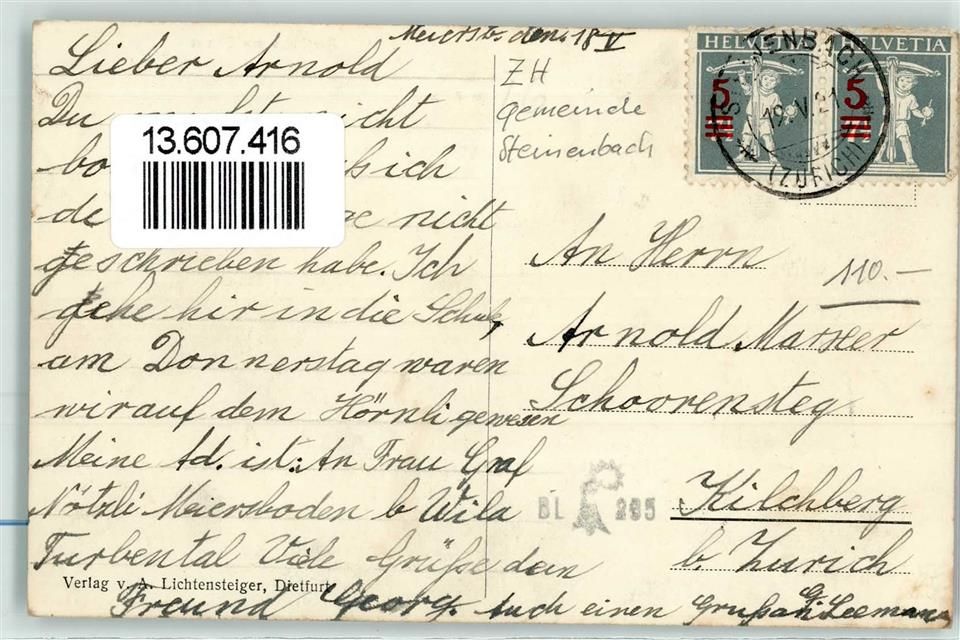 Meiersb. den. 18 V
Lieber Arnold
Du nicht
13.607.416
sich
nicht
geschrieben habe. Ich
gehe hir in die Schule,
am Donnerstag waren
wir auf dem Hörnli gewesen
Meine Ad. ist: An Frau Graf
Nötzli Meiersboden b Wila
Turbental Viele Grüße dein
Freund Georg. Auch einen Gruß an G. Leeman
Verlag v. A. Lichtensteiger, Dietfurt
ZH
gemeinde
Steinenbach
HELVETIA
HELVETIA
5
5
STEINENBACH
19.V.21
(ZÜRICH)
An Herrn
110.-
Arnold Marxer
Schoorensteg
Kilchberg
b. Zurich
BL 295